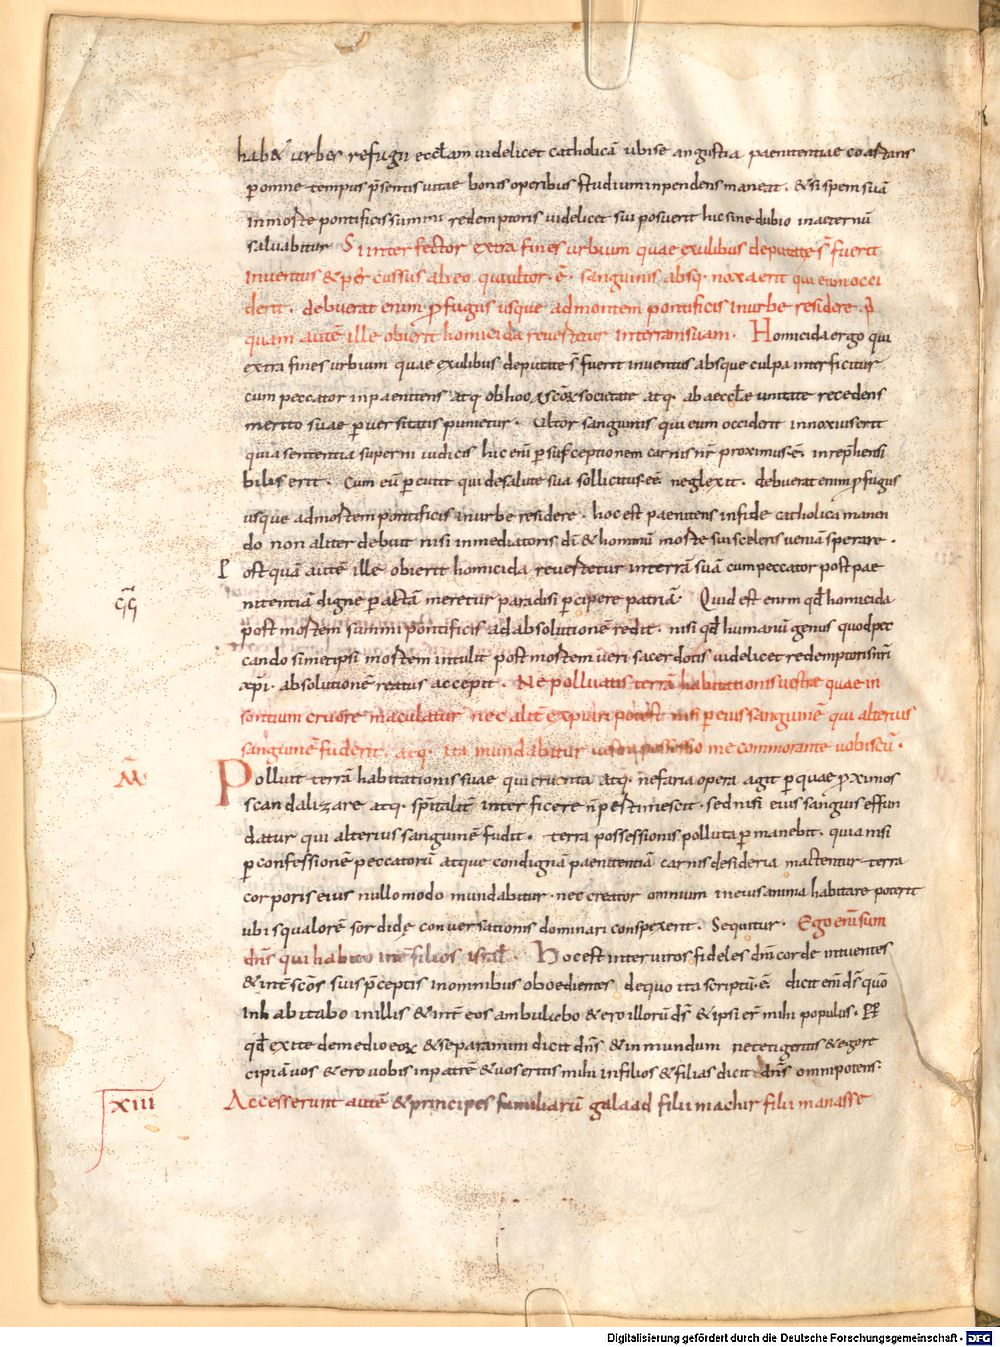 habet urbes refugii eccl̄am videlicet catholicā ubi se angustia paenitentiae coartans
p̱ omne tempus p̄sentis vitae bonis operibus studium inpendens maneat · & si spem suā
in morte pontificis summi redemptoris videlicet sui posuerit huc sine dubio in aeternū
salvabitur Si interfector extra fines urbium quae exulibus deputate s̄ fuerit
inventus & percussus ab eo qui ultor · ē · sanguinis absq· noxa erit qui eum occi
derit · debuerat enim profugus usque ad mortem pontificis in urbe residere · p
quam autē ille obierit homicida revertetur in terram suam · Homicida ergo qui
extra fines urbium quae exulibus deputate s̄ fuerit inventus absque culpa interficitur
cum peccator inpaenitens atq· ob hoc a sc̄ōꝝ societate atq· ab aeccl̄e unitate recedens
merito suae perversitatis punietur · Ultor sanguinis qui eum occiderit innoxius erit
quia sententia superni iudicis hic eni p̱ susceptionem carnis nr̄ proximus · ē · inrep̄hensi
bilis erit · Cum eū percutit qui de salute sua sollicitus · ēē · neglexit · debuerat enim profugus
usque ad mortem pontificis in urbe residere · hoc est paenitens in fide catholica manen
do non aliter debuit nisi in mediatoris dī & hominū morte sui sceleris veniā sperare ·
Post quā autē ille obierit homicida revertetur in terrā suā cum peccator post pae
nitentiā digne peractam meretur paradisi percipere patriā · Quid est enim qđ homicida
post mortem summi pontificis ad absolutionē redit · nisi qđ humanū genus quod pec
cando simetipsi mortem intulit post mortem veri sacerdotis videlicet redemptoris nr̄i
xp̄i · absolutionē reatus accepit · Ne polluatis terrā habitationis vestrae quae in
sontium cruore maculatur nec alit̄ expiari potest nisi per eius sanguinē qui alterius
sanguinē fuderit · atq· ita mundabitur vestra possessio me commorante vobiscū ·
Polluit terrā habitationis suae qui cruenta atq· nefaria opera agit p̱ quae proximos
scandalizare atq· sp̄italit̄ interficere n̄ pertimescit · sed nisi eius sanguis effun
datur qui alterius sanguinē fudit · terra possessionis polluta permanebit · quia nisi
p̱ confessionē peccatorū atque condignā paenitentiā carnis desideria mactentur terra
corporis eius nullo modo mundabitur · nec creator omnium in eius anima habitare poterit
ubi squalorē sordidę conversationis dominari conspexerit · Sequitur · Ego enī sum
dn̄s qui habito int̄ filios isrl̄ · Hoc est inter viros fideles dn̄m corde intuentes
& int̄ sc̄ōs suis p̄ceptis in omnibus oboedientes de quo ita scriptū · ē · dicit eni dn̄s quō
inhabitabo in illis & int̄ eos ambulabo & ero illorū dn̄s & ipsi er̄ mihi populus · PP
qđ exite de medio eoꝝ & separamini dicit dn̄s & inmundum ne tetigeritis & ego re
cipiā vos & ero vobis in patrē & vos eritis mihi in filios & filias dicit dn̄s omnipotens ·
XIII Accesserunt autē & principes familiarū galaad filii machir filii manasse
Digitalisierung gefördert durch die Deutsche Forschungsgemeinschaft - DFG